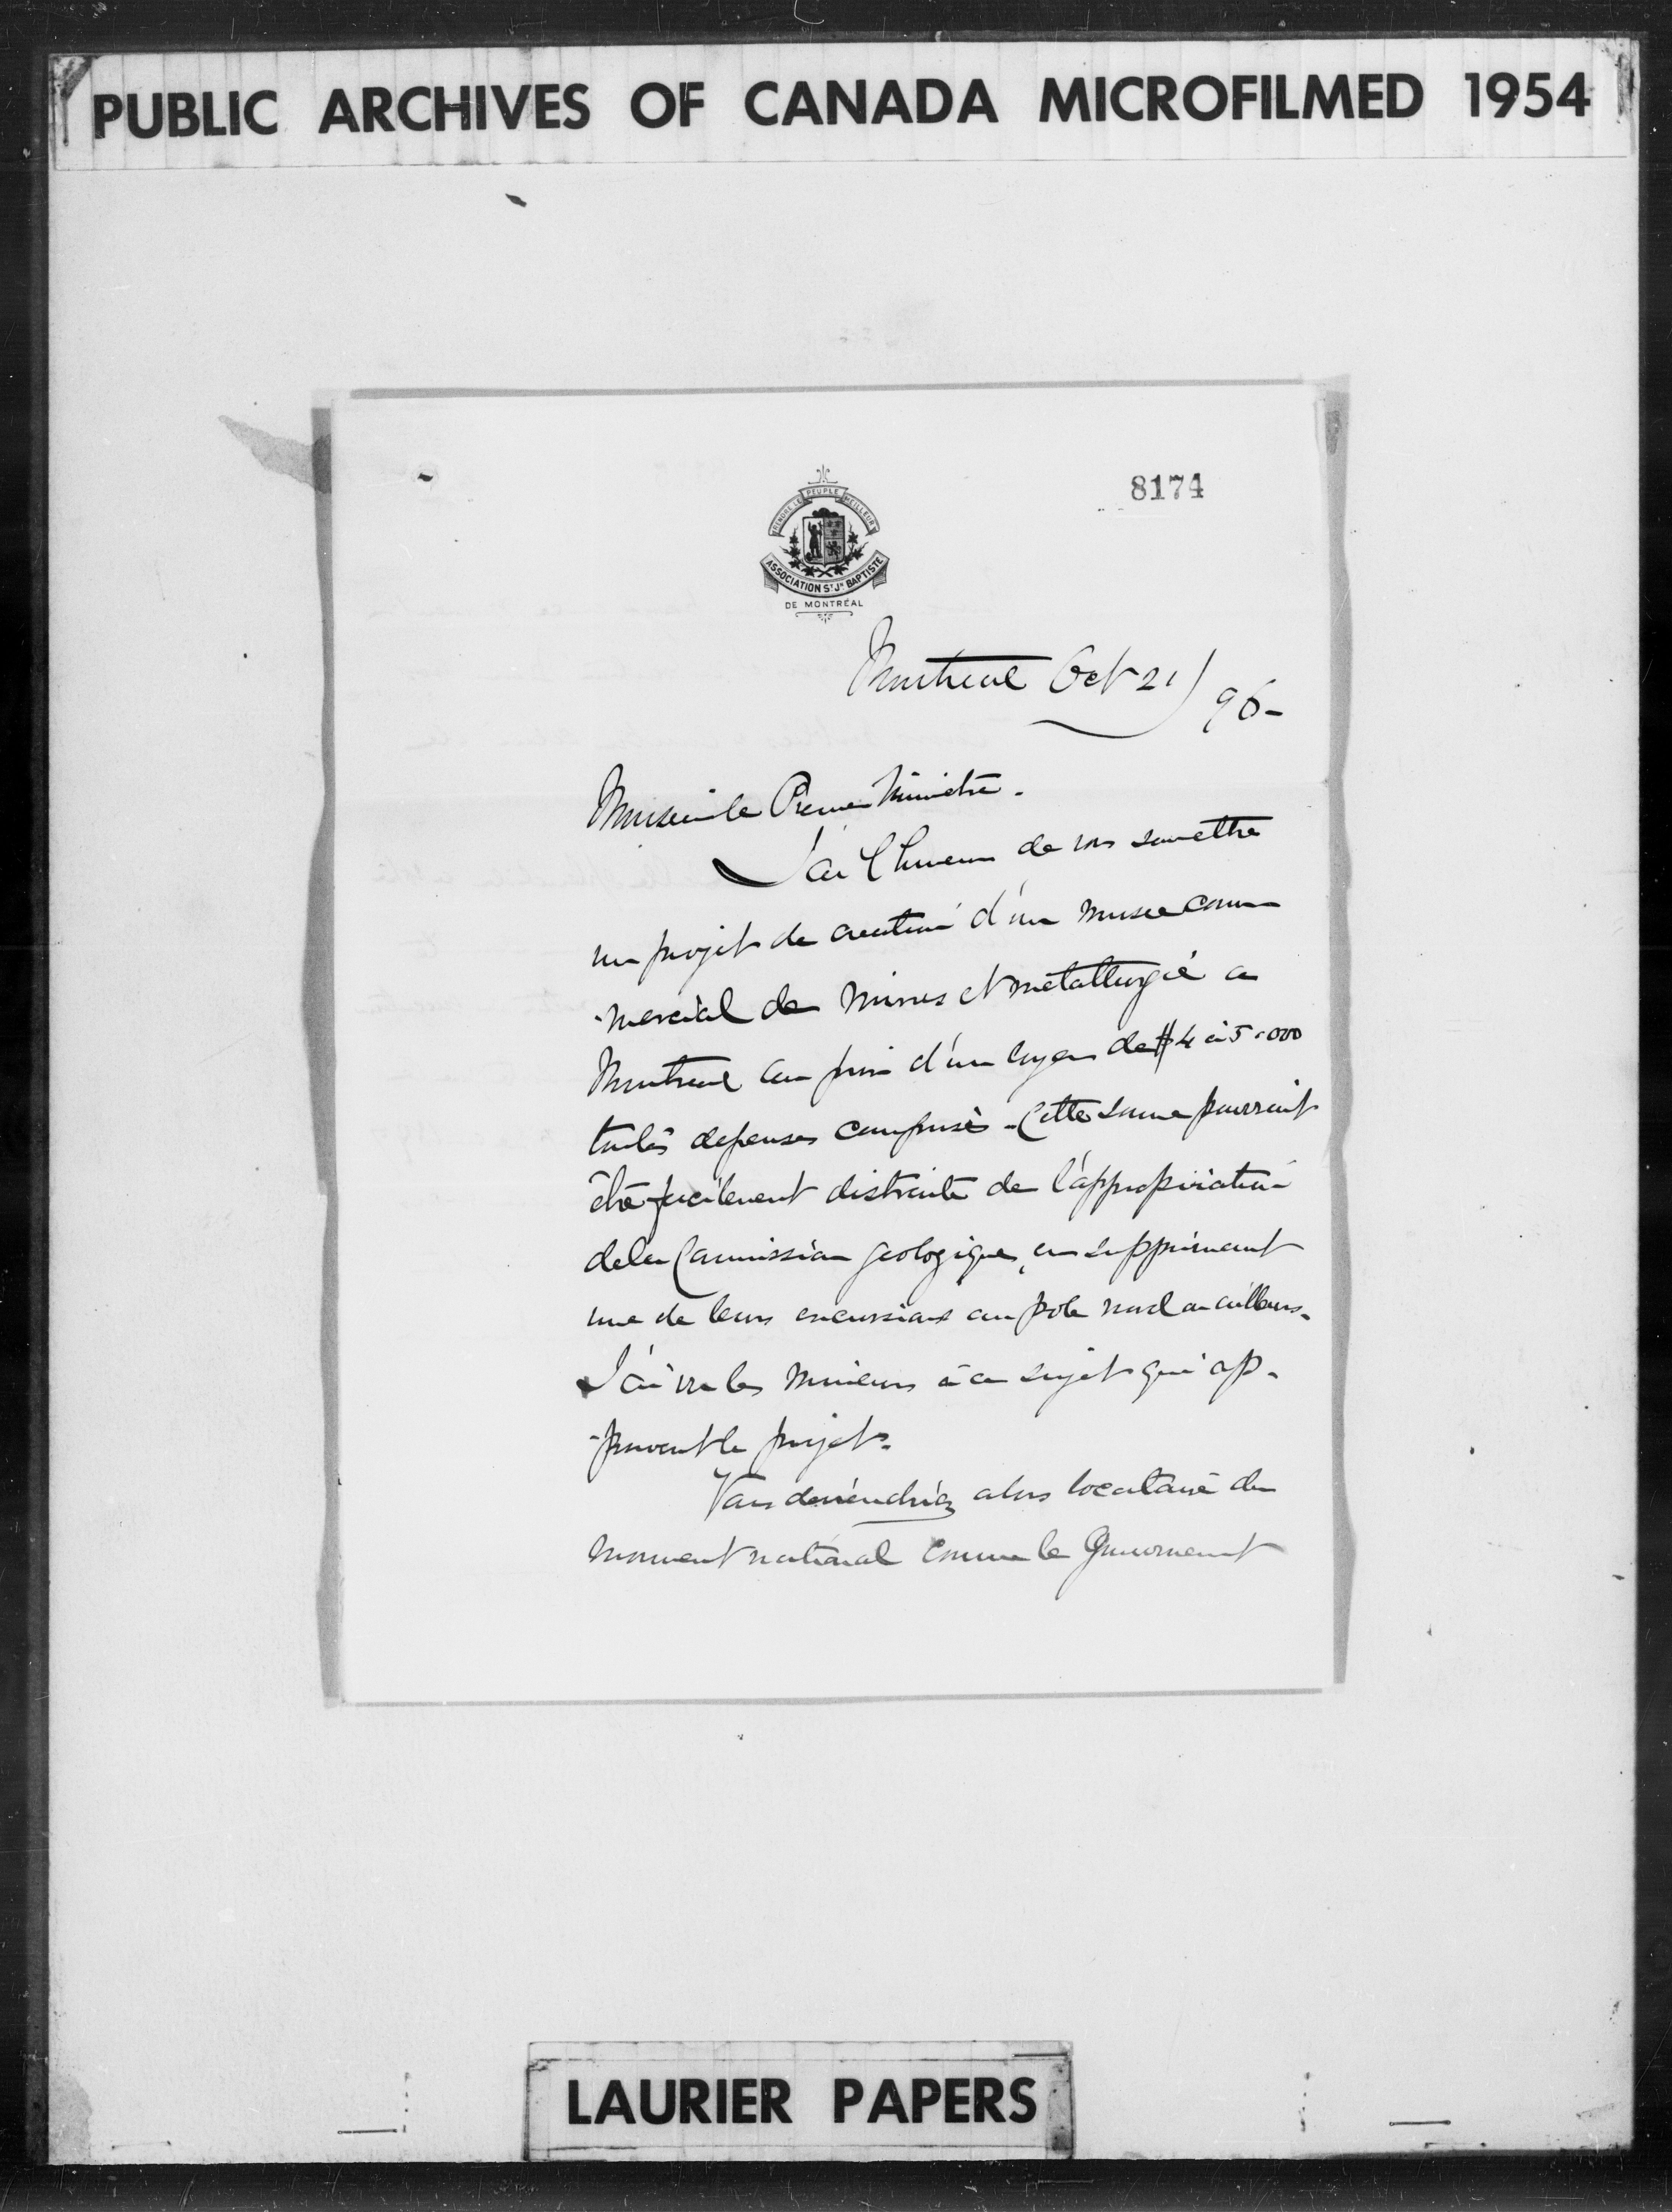 PUBLIC ARCHIVES OF CANADA MICROFILMED 1954
8174
RENDRE LE PEUPLE MEILLEUR
ASSOCIATION ST JN BAPTISTE
DE MONTRÉAL
Montreal Oct 21/96-
Monsieur le Premier Ministre.
J'ai l'honneur de vous soumettre
un projet de creation d'un musee com
-mercial de mines et métallurgie a
Montreal au prix d'un loyer de $4 à 5.000
toutes depenses comprises - Cette somme pourrait
être facilement distraite de l'appropriation
de la Commission geologique, en supprimant
une de leurs excursions au pole nord ou ailleurs.
J'ai vu les mineurs à ce sujet qui ap-
-prouvent le projet.
Vous deviendriez alors locataire du
monument national comme le Gouvernement
LAURIER PAPERS